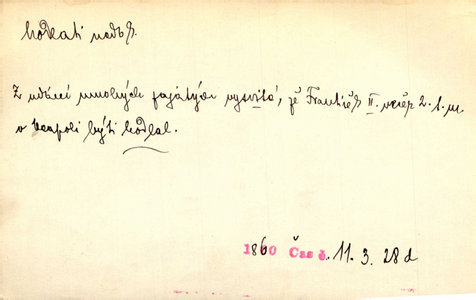 hodlati nedok.
Z udání mnohých jajatých vysvitá, že František II. večer 2. t. m.
v Neapoli býti hodlal.
1860 Čas č. 11. 3. 28 d